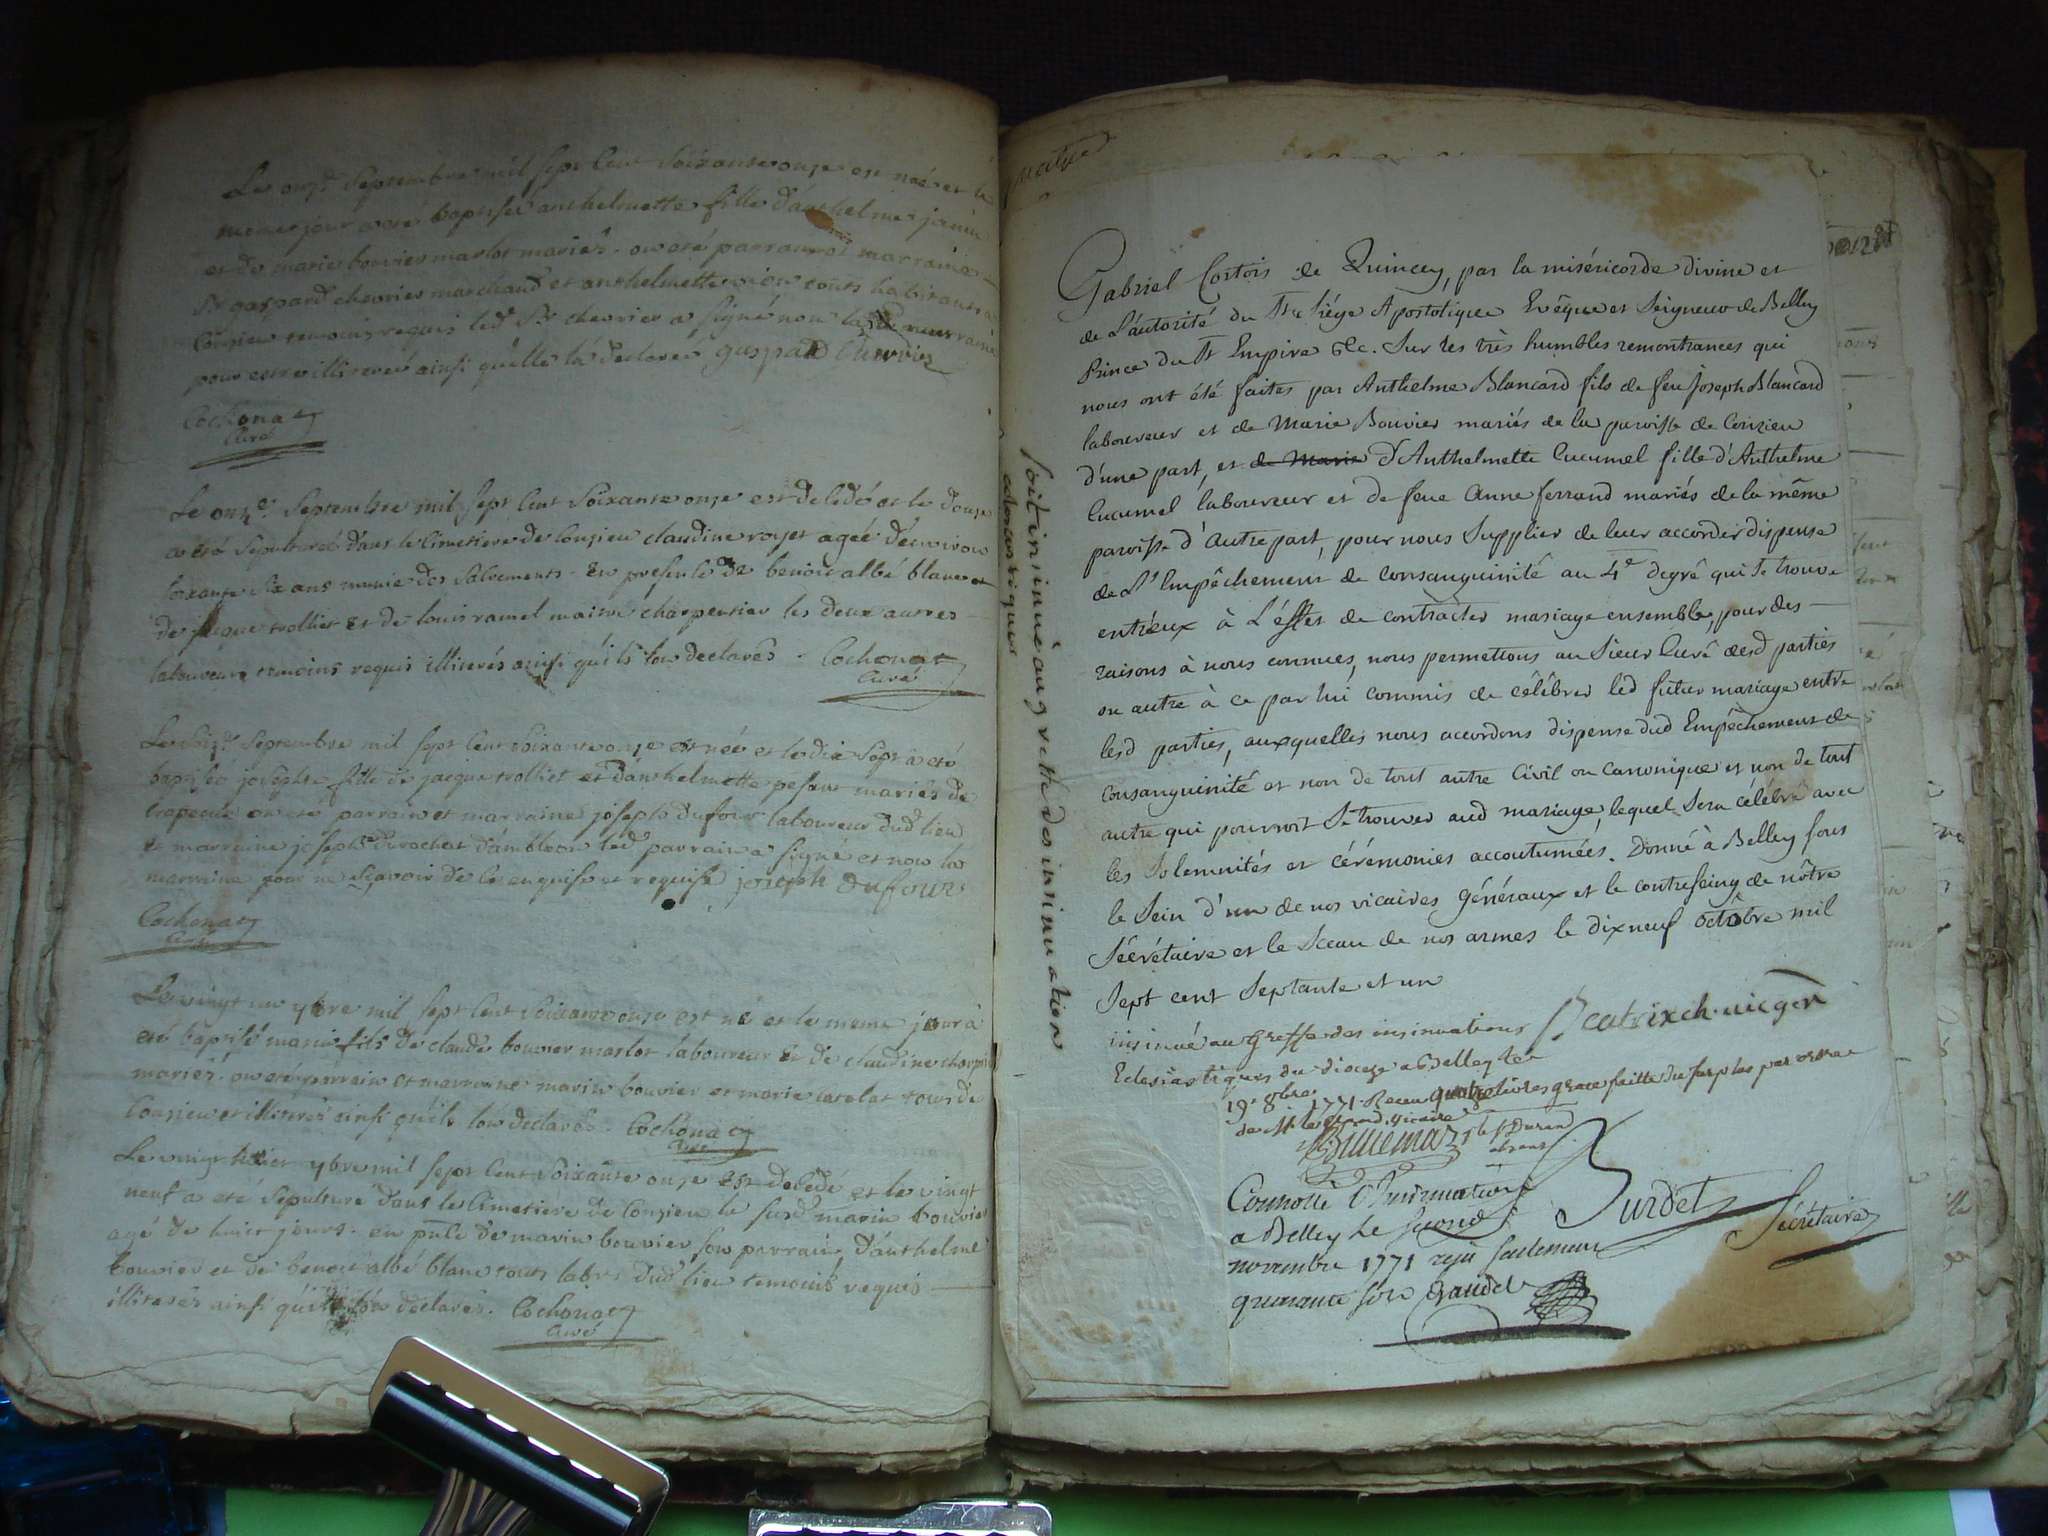 Le onze Septembre mil sept cent soixante onze est née et le
meme jour a eté baptisée anthelmette fille d'anthelme janin
et de marie bouvier marlot mariés. ont eté parrain et marraine
Sr gaspard chevrier marchand et anthelmette tous habitants a
Conzieu temoins requis led Sr chevrier a signé non la marraine
pour estre illiterée ainsi qu'elle l'a declarée gaspard Chevrier
Cochonat
Curé
Le onze Septembre mil sept cent soixante onze est decedé et le douze
a eté sepulturée dans le cimetiere de Conzieu claudine royet agée d'environ
soixante six ans munie des sacrements. En presence de benoit albé blanc et
de jacque trollier et de louis ramel maitre charpentier les deux autres
laboureurs temoins requis illiterés ainsi qu'ils l'on declarés. Cochonat
Curé
Le seize Septembre mil sept cent soixante onze est née et le dix sept a eté
baptisée josephte fille de jacque trollier et d'anthelmette pesant mariés de
crapeou ont eté parrain et marraine joseph dufour laboureur dud lieu
et marraine josephte durochat d'ambleon led parrain a signé et non la
marraine pour ne sçavoir de ce enquise et requise joseph dufour
Cochonat
Curé
Le vingt un 7bre mil sept cent soixante onze est né et le meme jour a
eté baptisé marin fils de claude bouvier marlot laboureur et de claudine
mariés. ont eté parrain et marraine marin bouvier et marie catelat tous de
Conzieu et illiterés ainsi qu'ils l'on declarés. Cochonat
Curé
Le vingt huit 7bre mil sept cent soixante onze est decedé et le vingt
neuf a eté sepulturé dans le cimetiere de Conzieu le susd marin bouvier
agé de huit jours. en pnce de marin bouvier son parrain, d'anthelme
bouvier et de benoit albé blanc tous labrs dud lieu temoins requis
illiterés ainsi qu'ils l'on declarés. Cochonat
Curé
soit insinué au greffe des insinuation
eclesiastiques
Gabriel Cortois de Quincey, par la miséricorde divine et
de L'autorité du St Siége Apostolique Evêque et Seigneur de Belley
Prince du St Empire &c. Sur les très humbles remontrances qui
nous ont été faites par Anthelme Blancard fils de feu Joseph Blancard
laboureur et de Marie Bouvier mariés de la paroisse de Conzieu
d'une part, et de Marie d'Anthelmette Cucumel fille d'Anthelme
Cucumel laboureur et de feue Anne ferrand mariés de la même
paroisse d'autre part, pour nous Supplier de leur accorder dispense
de L'Empêchement de consanguinité au 4e degré qui se trouve
entr'eux à L'éffet de contracter mariage ensemble, pour des
raisons à nous connues, nous permettons au Sieur Curé desd parties
ou autre à ce par lui commis de célébrer led futur mariage entre
lesd parties, auxquelles nous accordons dispense dud Empêchement de
consanguinité et non de tout autre Civil ou Canonique et non de tout
autre qui pourroit se trouver aud mariage, lequel sera célébré avec
les Solemnités et cérémonies accoutumées. Donné à Belley sous
le Sein d'un de nos vicaires Généraux et le contreseing de nôtre
Sécrétaire et le Sceau de nos armes le dixneuf octobre mil
Sept cent Septante et un
insinué au Greffe des insinuations Beatrix ch. vic gén
Eclesiastiques du diocese a Belley le
19e 8bre 1771. Receu quatre livres grace faitte du surplus par ordre
de M le grand vicaire
Billiemaz
Controllé
a Belley le second Surdet
Sécrétaire
novembre 1771 reçu seulement
quarante sols Gaudet